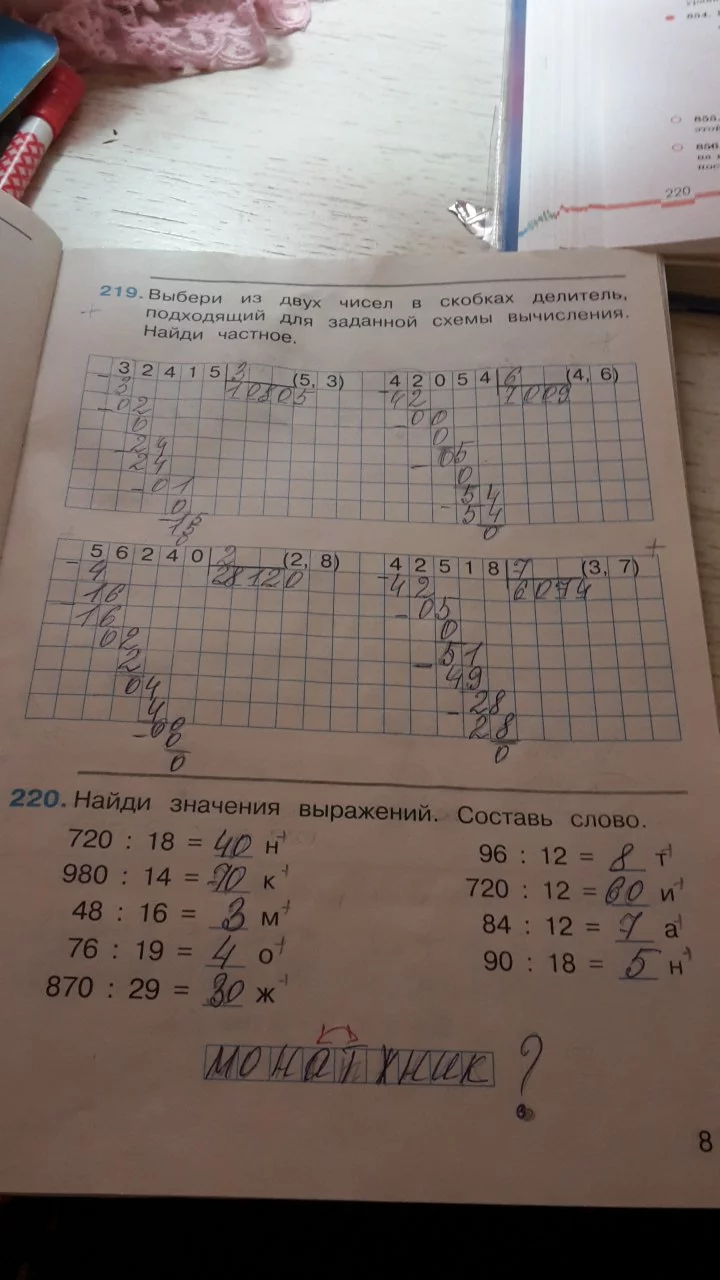 854.
855.
856
220
219. Выбери из двух чисел в скобках делитель,
подходящий для заданной схемы вычисления.
Найди частное.
3 2 4 1 5 3 (5, 3)
10805
3
02
6
24
24
01
0
15
15
0
4 2 0 5 4 6 (4, 6)
7009
42
00
0
05
0
54
54
0
5 6 2 4 0 2 (2, 8)
28120
4
16
16
02
2
04
4
00
0
0
4 2 5 1 8 7 (3, 7)
6074
42
05
0
51
49
28
28
0
220. Найди значения выражений. Составь слово.
720 : 18 = 40 н
980 : 14 = 70 к
48 : 16 = 3 м
76 : 19 = 4 о
870 : 29 = 30 ж
96 : 12 = 8 т
720 : 12 = 60 и
84 : 12 = 7 а
90 : 18 = 5 н
монатжник ?
8